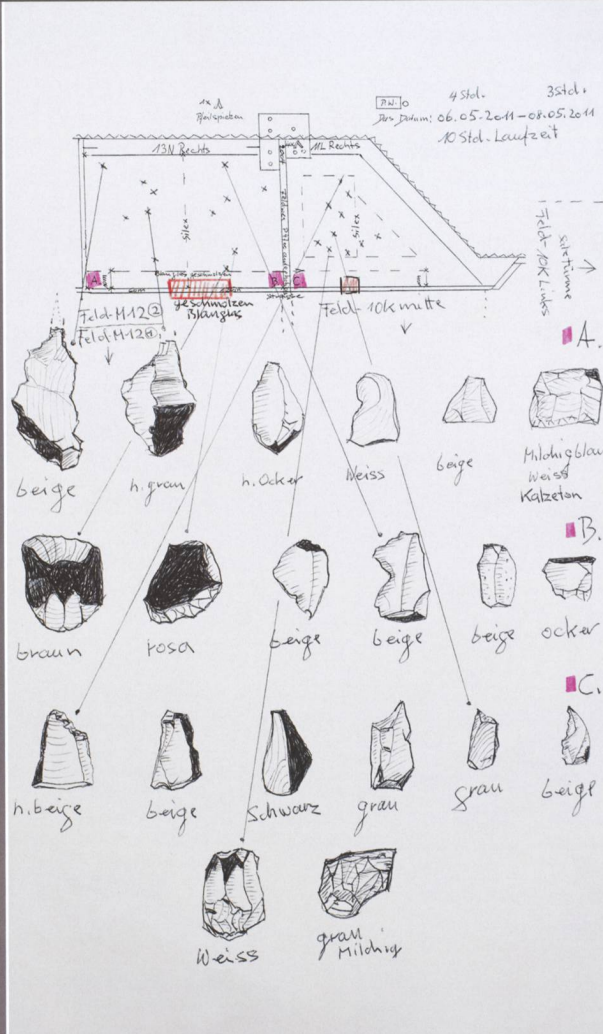 4 Std. 3 Std.
1x
P.W.
Das Datum: 06.05-2011-08.05.2011
10 Std. Laufzeit
13N Rechts
11L Rechts
silex
silex
A
B
C
geschmolzen
Blauglas
Feld-M-12 ②
Feld-M-12 ①
Feld-10k mitte
Feld 10K Links
A.
beige
h.grau
h.Ocker
Weiss
beige
Milchigblau
Weiss
Kalzeton
B.
braun
rosa
beige
beige
beige
ocker
C.
h.beige
beige
Schwarz
grau
grau
beige
Weiss
grau
Milchig